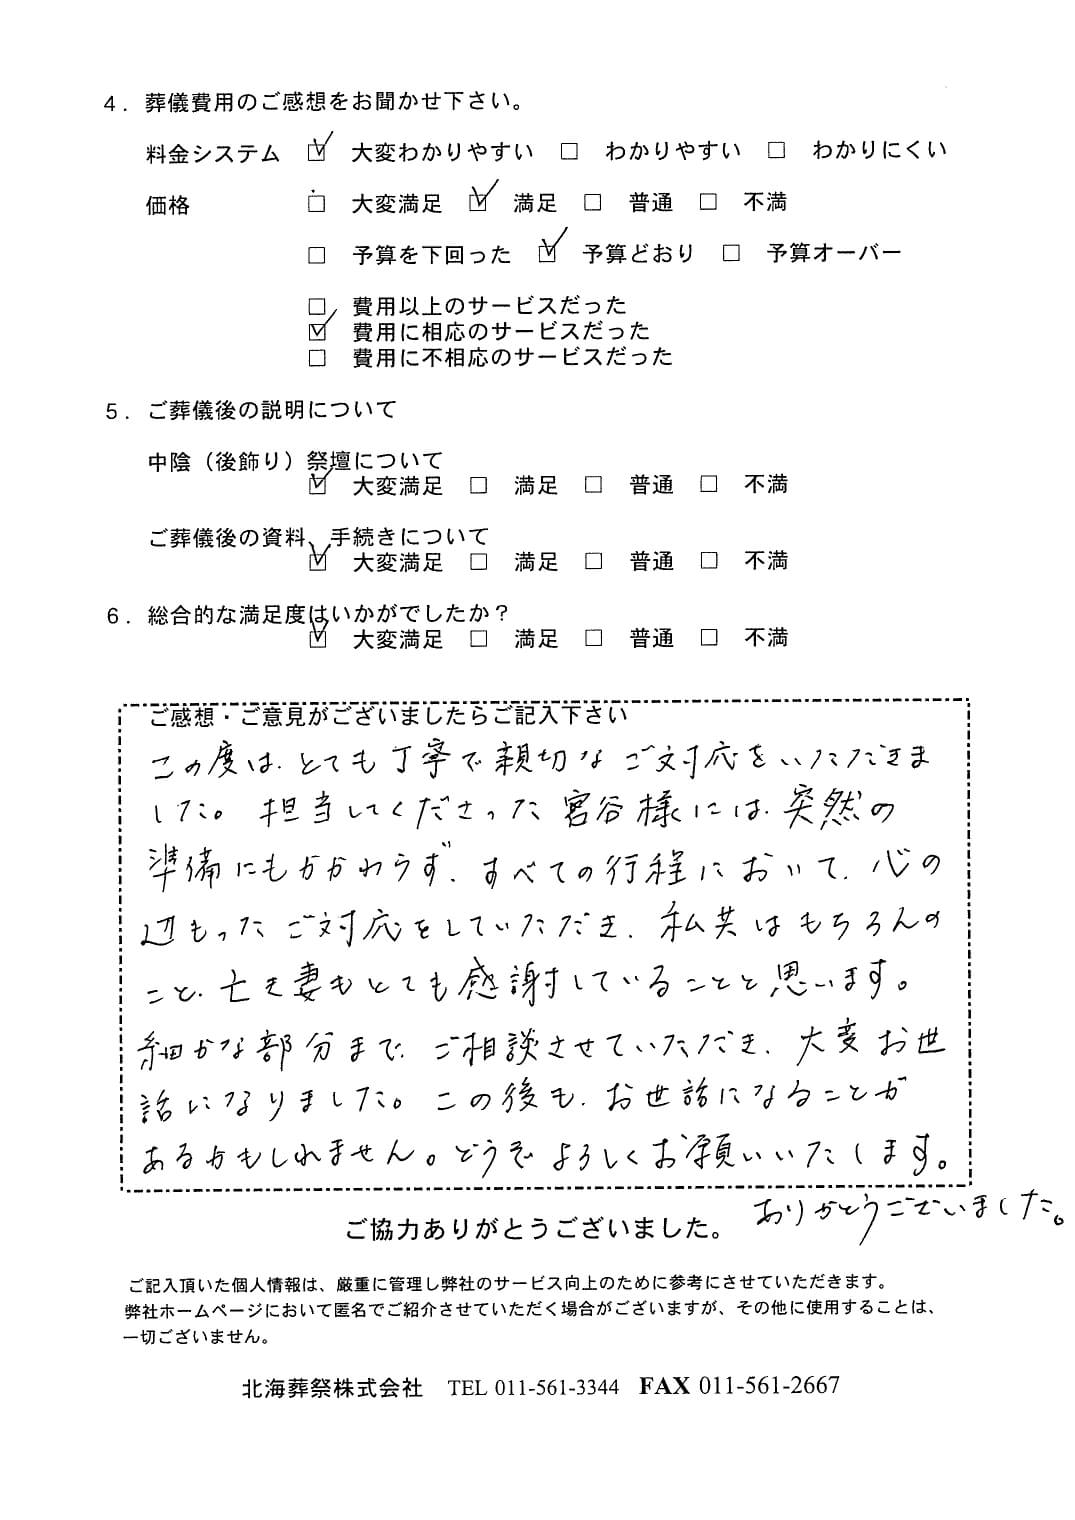 4. 葬儀費用のご感想をお聞かせ下さい。
料金システム ☑ 大変わかりやすい □ わかりやすい □ わかりにくい
価格 □ 大変満足 ☑ 満足 □ 普通 □ 不満
□ 予算を下回った ☑ 予算どおり □ 予算オーバー
□ 費用以上のサービスだった
☑ 費用に相応のサービスだった
□ 費用に不相応のサービスだった
5. ご葬儀後の説明について
中陰（後飾り）祭壇について
☑ 大変満足 □ 満足 □ 普通 □ 不満
ご葬儀後の資料、手続きについて
☑ 大変満足 □ 満足 □ 普通 □ 不満
6. 総合的な満足度はいかがでしたか？
☑ 大変満足 □ 満足 □ 普通 □ 不満
ご感想・ご意見がございましたらご記入下さい
この度は、とても丁寧で親切なご対応をいただきま
した。担当してくださった宮谷様には、突然の
準備にもかかわらず、すべての行程において、心の
辺もったご対応をしていただき、私共はもちろんの
こと、亡き妻もとても感謝していることと思います。
細かな部分まで、ご相談させていただき、大変お世
話になりました。この後も、お世話になることが
あるかもしれません。どうぞよろしくお願いいたします。
ありがとうございました。
ご協力ありがとうございました。
ご記入頂いた個人情報は、厳重に管理し弊社のサービス向上のために参考にさせていただきます。
弊社ホームページにおいて匿名でご紹介させていただく場合がございますが、その他に使用することは、
一切ございません。
北海葬祭株式会社 TEL 011-561-3344 FAX 011-561-2667